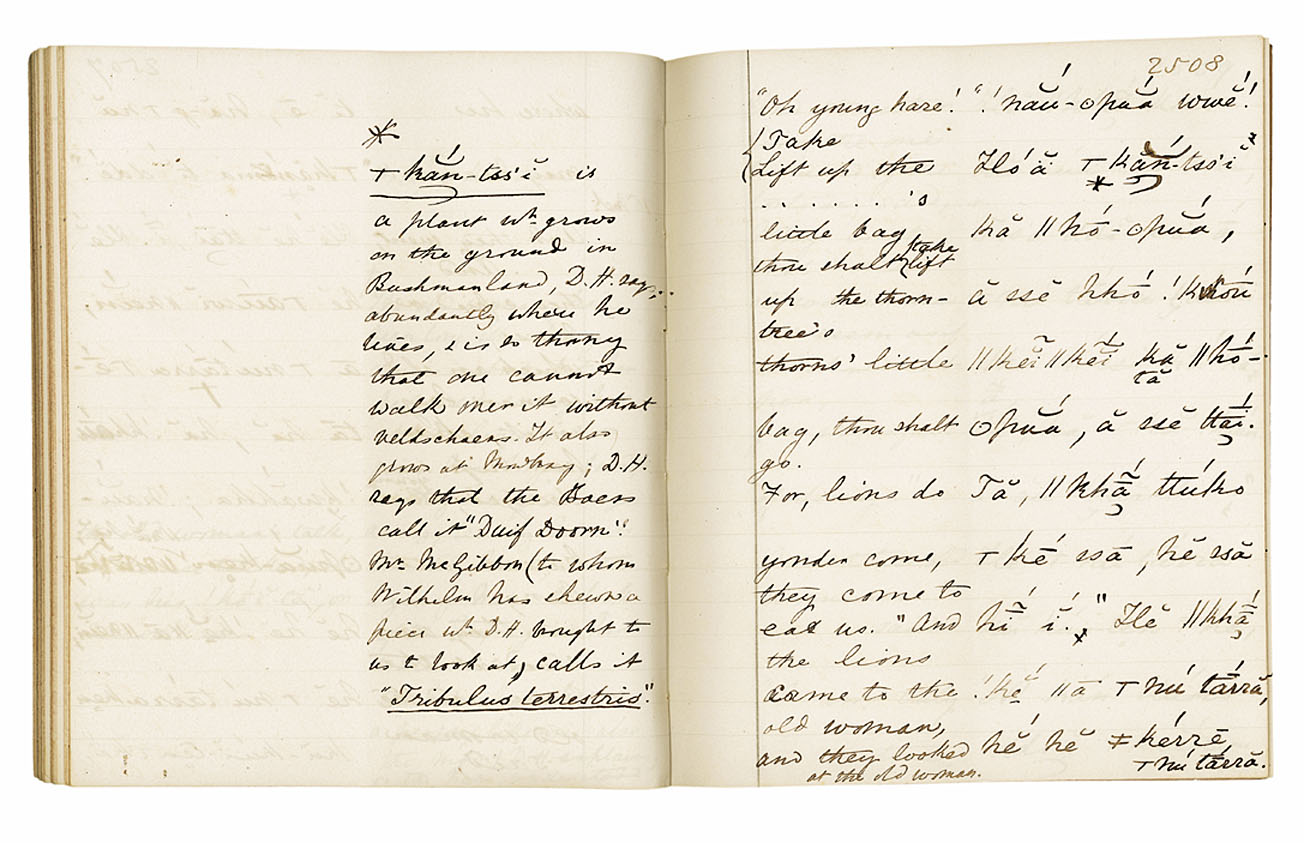 *
⊤ kắn-tss'ĭ is
a plant wh. grows
on the ground in
Bushmanland, D.H. says,
abundantly where he
lives, & is so thorny
that one cannot
walk over it without
veldschoens. It also
grows at Mowbray; D.H.
says that the Boers
call it "Duif Doorn".
Mr. McGibbon (to whom
Wilhelm has shewn a
piece wh. D.H. brought to
us to look at) calls it
"Tribulus terrestris".
2508
"Oh young hare! "! nắu-ʘpuắ wwĕ́!
Take
Lift up the Ĩló ă ⊤ kắn-tss'ĭ
. . . . . . . 's *
little bag, kă ǁhó-ʘpuắ,
thou shalt take lift
up the thorn- ă ssĕ hhó !khóü
tree's
thorns' little ǁkĕ̃ĭǁkĕ̃ĭ kă ǁhó-
tă
bag, thou shalt ʘpuắ, ă ssĕ ttāĭ.
go.
For, lions do Tă, ǁkhā̃ ttúko
yonder come, ⊤ ké ssā, hĕ ssā
they come to
eat us." And hī̃ ĭ́." Ĩlĕ ǁkhā̃
the lions
came to the !kĕ́ ǁā ⊤ nú tárră,
old woman,
and they looked hĕ́ hĕ ǂ kérrĕ
at the old woman. ⊤ nú tárră.